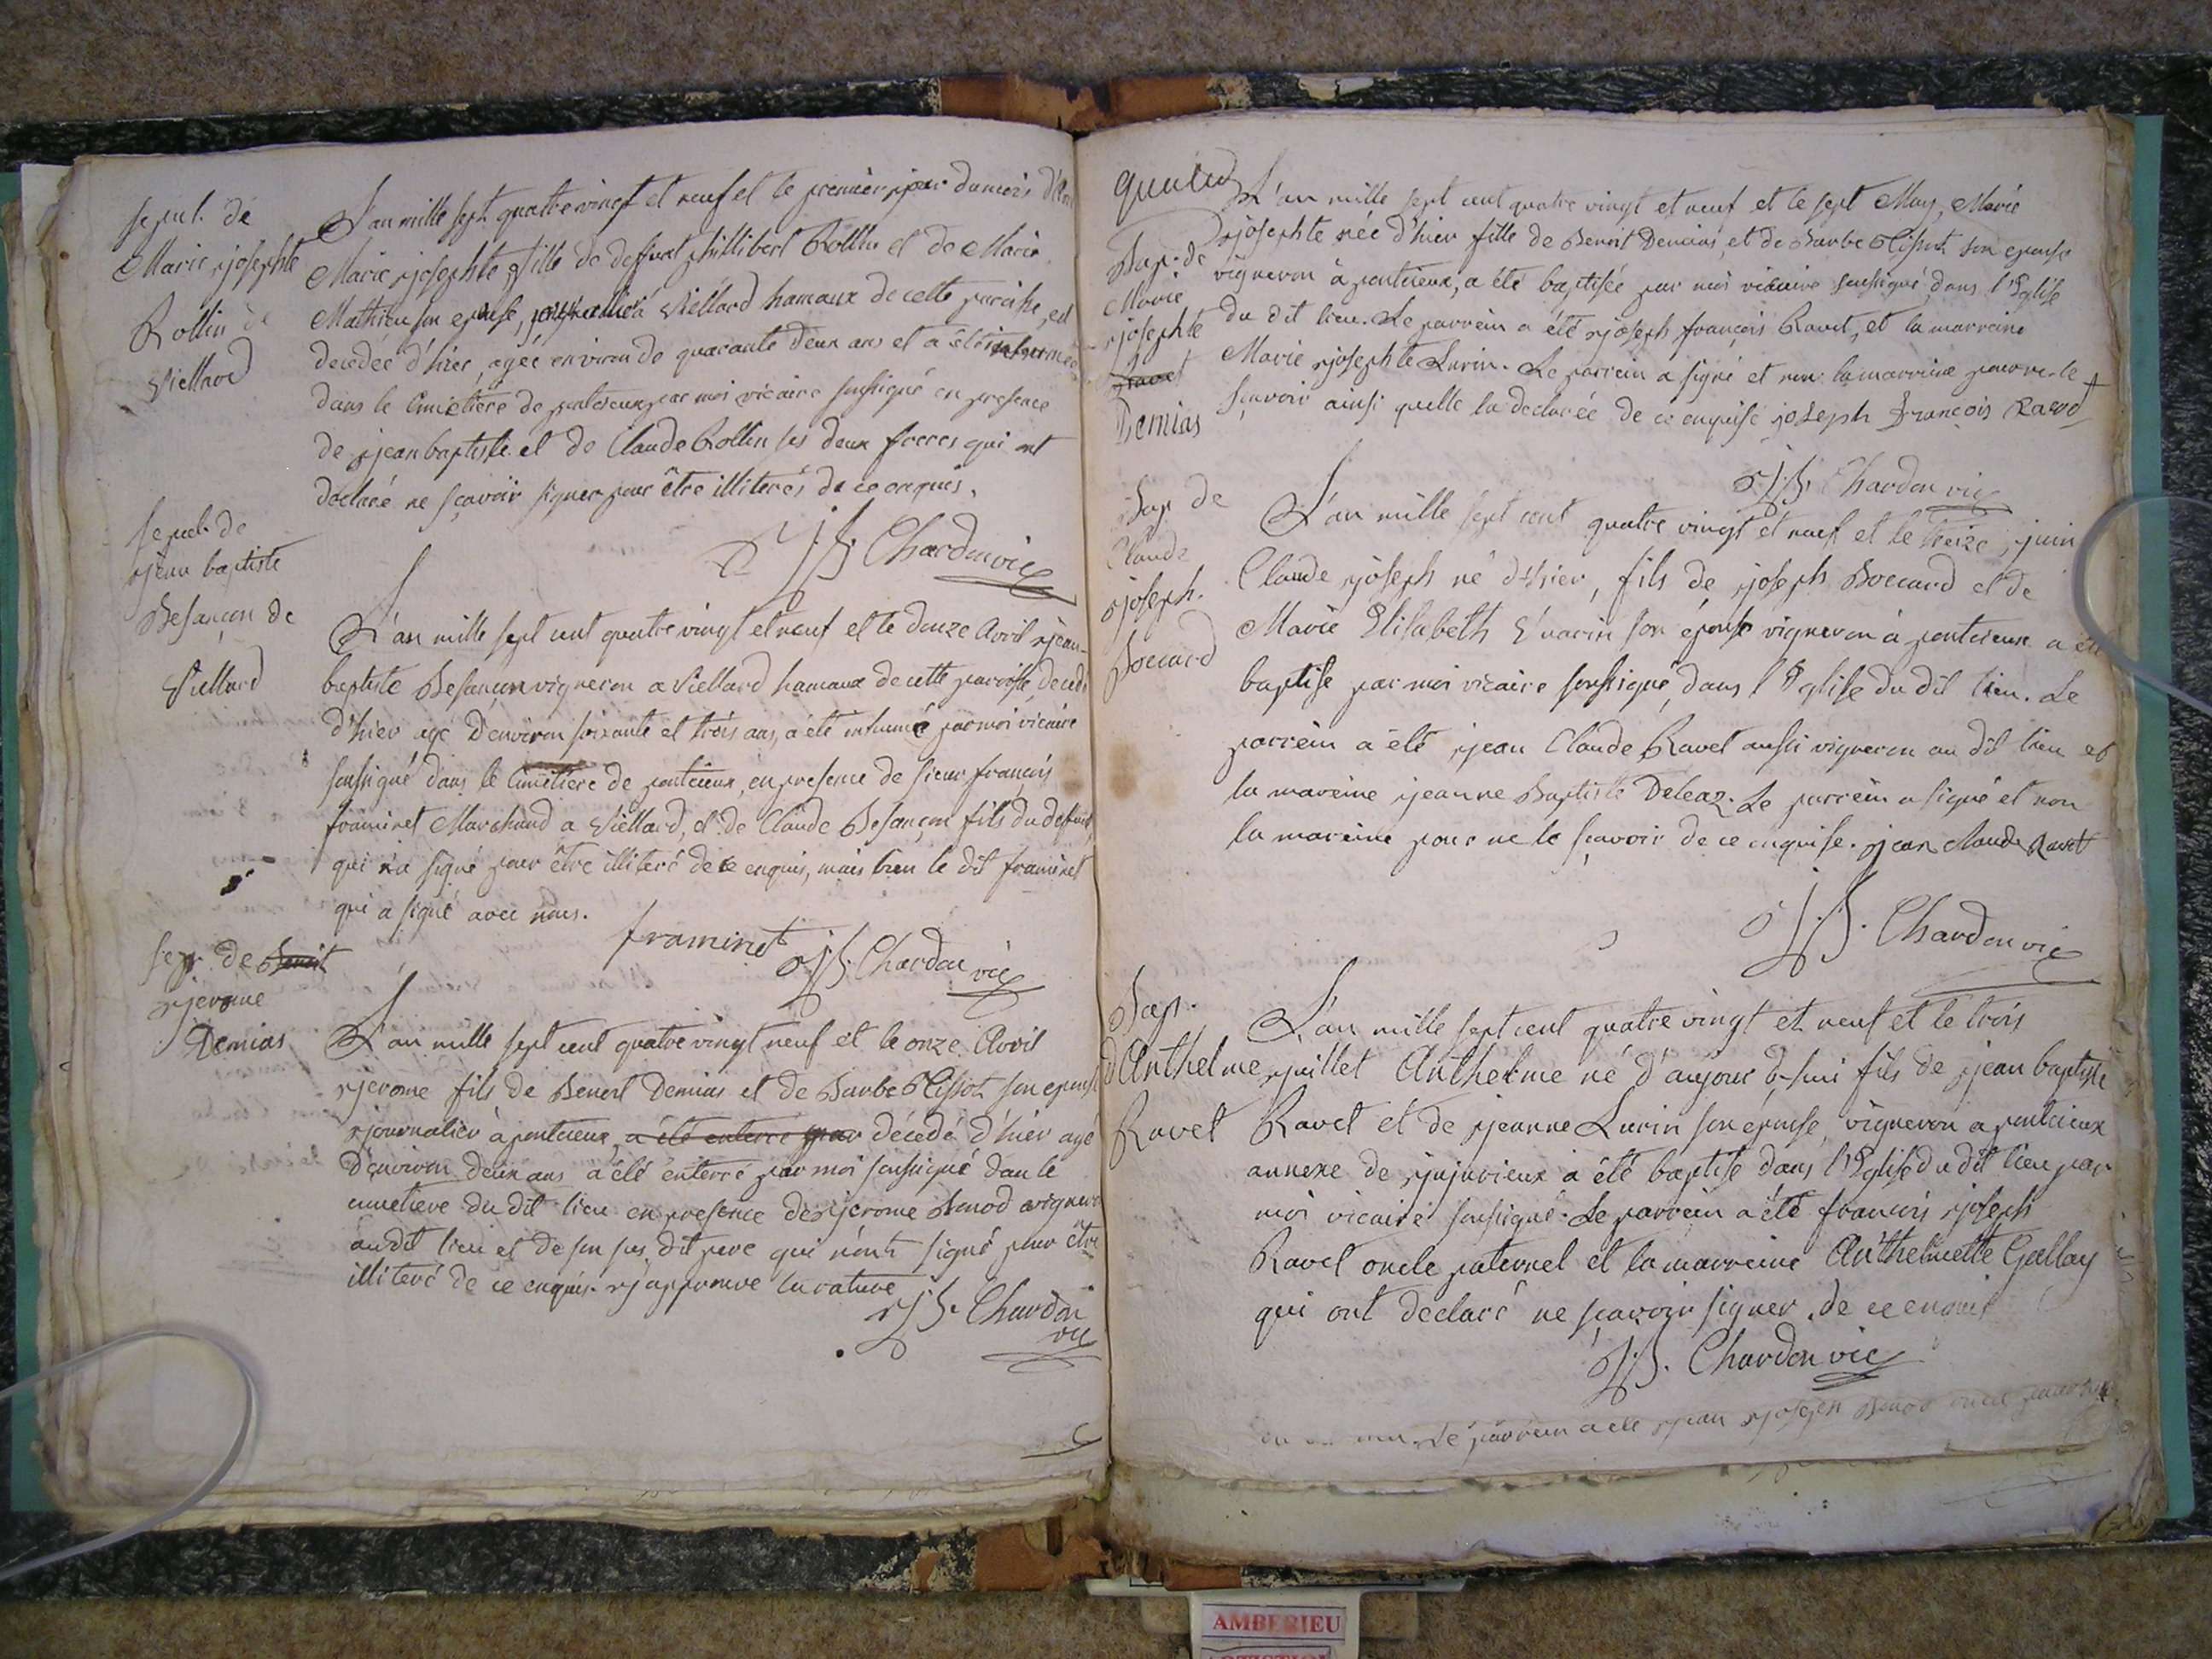 sepul. de
Marie josephte
Rollin de
Viellard
L'an mille sept quatre vingt et neuf et le premier jour du mois d'Avril
Marie josephte fille de deffunt phillibert Rollin et de Marie
Mathieu son epouse, Viellard hamaux de cette paroisse, est
decedée d'hier, agée environ de quarante deux ans et a été inhumée
dans le Cimetière de pontcieux par moi vicaire soussigné en presence
de jean baptiste et de Claude Rollin ses deux freres qui ont
declaré ne sçavoir signer pour être illiterés de ce enquis.
J.B. Chardon vic
sepul. de
jean baptiste
Besançon de
Viellard
L'an mille sept cent quatre vingt et neuf et le douze Avril jean-
baptiste Besançon vigneron a Viellard hamaux de cette paroisse, decedé
d'hier agé d'environ soixante et trois ans, a été inhumé par moi vicaire
soussigné dans le Cimetière de pontcieux, en presence de sieur françois
framinet Marchand a Viellard, et de Claude Besançon fils du defunt,
qui n'a signé pour être illiteré de ce enquis, mais bien le dit framinet
qui a signé avec nous.
framinet J.B. Chardon vic
sep. de Benoit
jerome
Demias
L'an mille sept cent quatre vingt neuf et le onze Avril
jerome fils de Benoit Demias et de Barbe Tissot son epouse
journalier à pontcieux, a été enterré par décédé d'hier agé
d'environ deux ans a été enterré par moi soussigné dan le
cimetiere du dit lieu en presence de jerome Benod vigneron
au dit lieu et de son sus dit pere qui n'ont signé pour être
illiteré de ce enquis. j'approuve la rature
J.B. Chardon
vic
Bap. de
Marie
josephte
Ravet
Demias
L'an mille sept cent quatre vingt et neuf et le sept May, Marie
josephte née d'hier fille de Benoit Demias, et de Barbe Tissot son epouse
vigneron à pontcieux, a été baptisée par moi vicaire soussigné, dans l'Eglise
du dit lieu. Le parrein a été joseph françois Ravet, et la marreine
Marie josephte Lurin. Le parrein a signé et non la marreine pour ne le
sçavoir ainsi quelle la declarée de ce enquise joseph françois Ravet
J.B. Chardon vic
Bap. de
Claude
joseph.
Boccard
L'an mille sept cent quatre vingt et neuf et le treize juin
Claude joseph né d'hier, fils de joseph Boccard et de
Marie Elisabeth son épouse vigneron à pontcieux a été
baptisé par moi vicaire soussigné, dans l'Eglise du dit lieu. Le
parrein a été jean Claude Ravet aussi vigneron au dit lieu et
la mareine jeanne Baptiste Deleaz. Le parrein a signé et non
la mareine pour ne le sçavoir de ce enquise. jean claude Ravet
J.B. Chardon vic
Bap.
d'Anthelme
Ravet
L'an mille sept cent quatre vingt et neuf et le trois
juillet Anthelme né d'aujourd'hui fils de jean baptiste
Ravet et de jeanne Lurin son epouse, vigneron a pontcieux
annexe de jujurieux a été baptisé dans l'Eglise du dit lieu par
moi vicaire soussigné. Le parrein a été françois joseph
Ravet oncle paternel et la marreine Anthelmette Gallay
qui ont declaré ne sçavoir signer de ce enquis
J.B. Chardon vic
Le parrein a été jean joseph Benod oncle
AMBERIEU